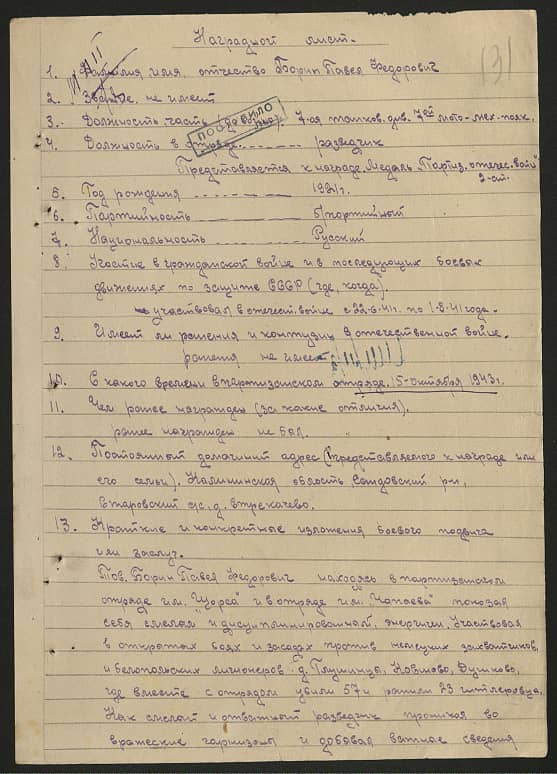 Наградной лист.
131
1. Фамилия имя, отчество Борин Павел Федорович
2. Звание, не имеет
3. Должность часть 7-ая танков. див. 7ой мото-мех. полк.
ПОСТАНОВИЛО
4. Должность в отряде. разведчик
Представляется к награде. Медаль "Партиз. отечес. войн"
2-ст.
5. Год рождения 1921г.
6. Партийность б/портийный
7. Национальность Русский
8. Участие в гражданской войне и в последующих боевых
движениях по защите СССР (где, когда).
участвовал в отечест. войне с 22-6-41г. по 1-8-41 года.
9. Имеет ли ранения и контузии в отечественной войне.
ранения не имеет
10. С какого времени в партизанском отряде. 15-октября 1943г.
11. Чем ранее награжден (за какие отличия).
ранее награжден не был.
12. Постоянный домашний адрес (представляемого к награде или
его семьи). Калининская область, Сандовский р-н,
с/с, д.
13. Краткие и конкретные изложения боевого подвига
или заслуг.
Тов. Борин Павел Федорович находясь в партизанском
отряде им. "Щорса" и в отряде им. "Чапаева" показал
себя смелым и дисциплинированным, энергичн. Участвовал
в открытых боях и засадах против немецких захватчиков,
и белопольских лигионеров д. Глушинца,
где вместе с отрядом убили 57 и ранили 23 гитлеровца.
Как смелый и отважный разведчик проникая во
вражеские гарнизоны и добывая важное сведения